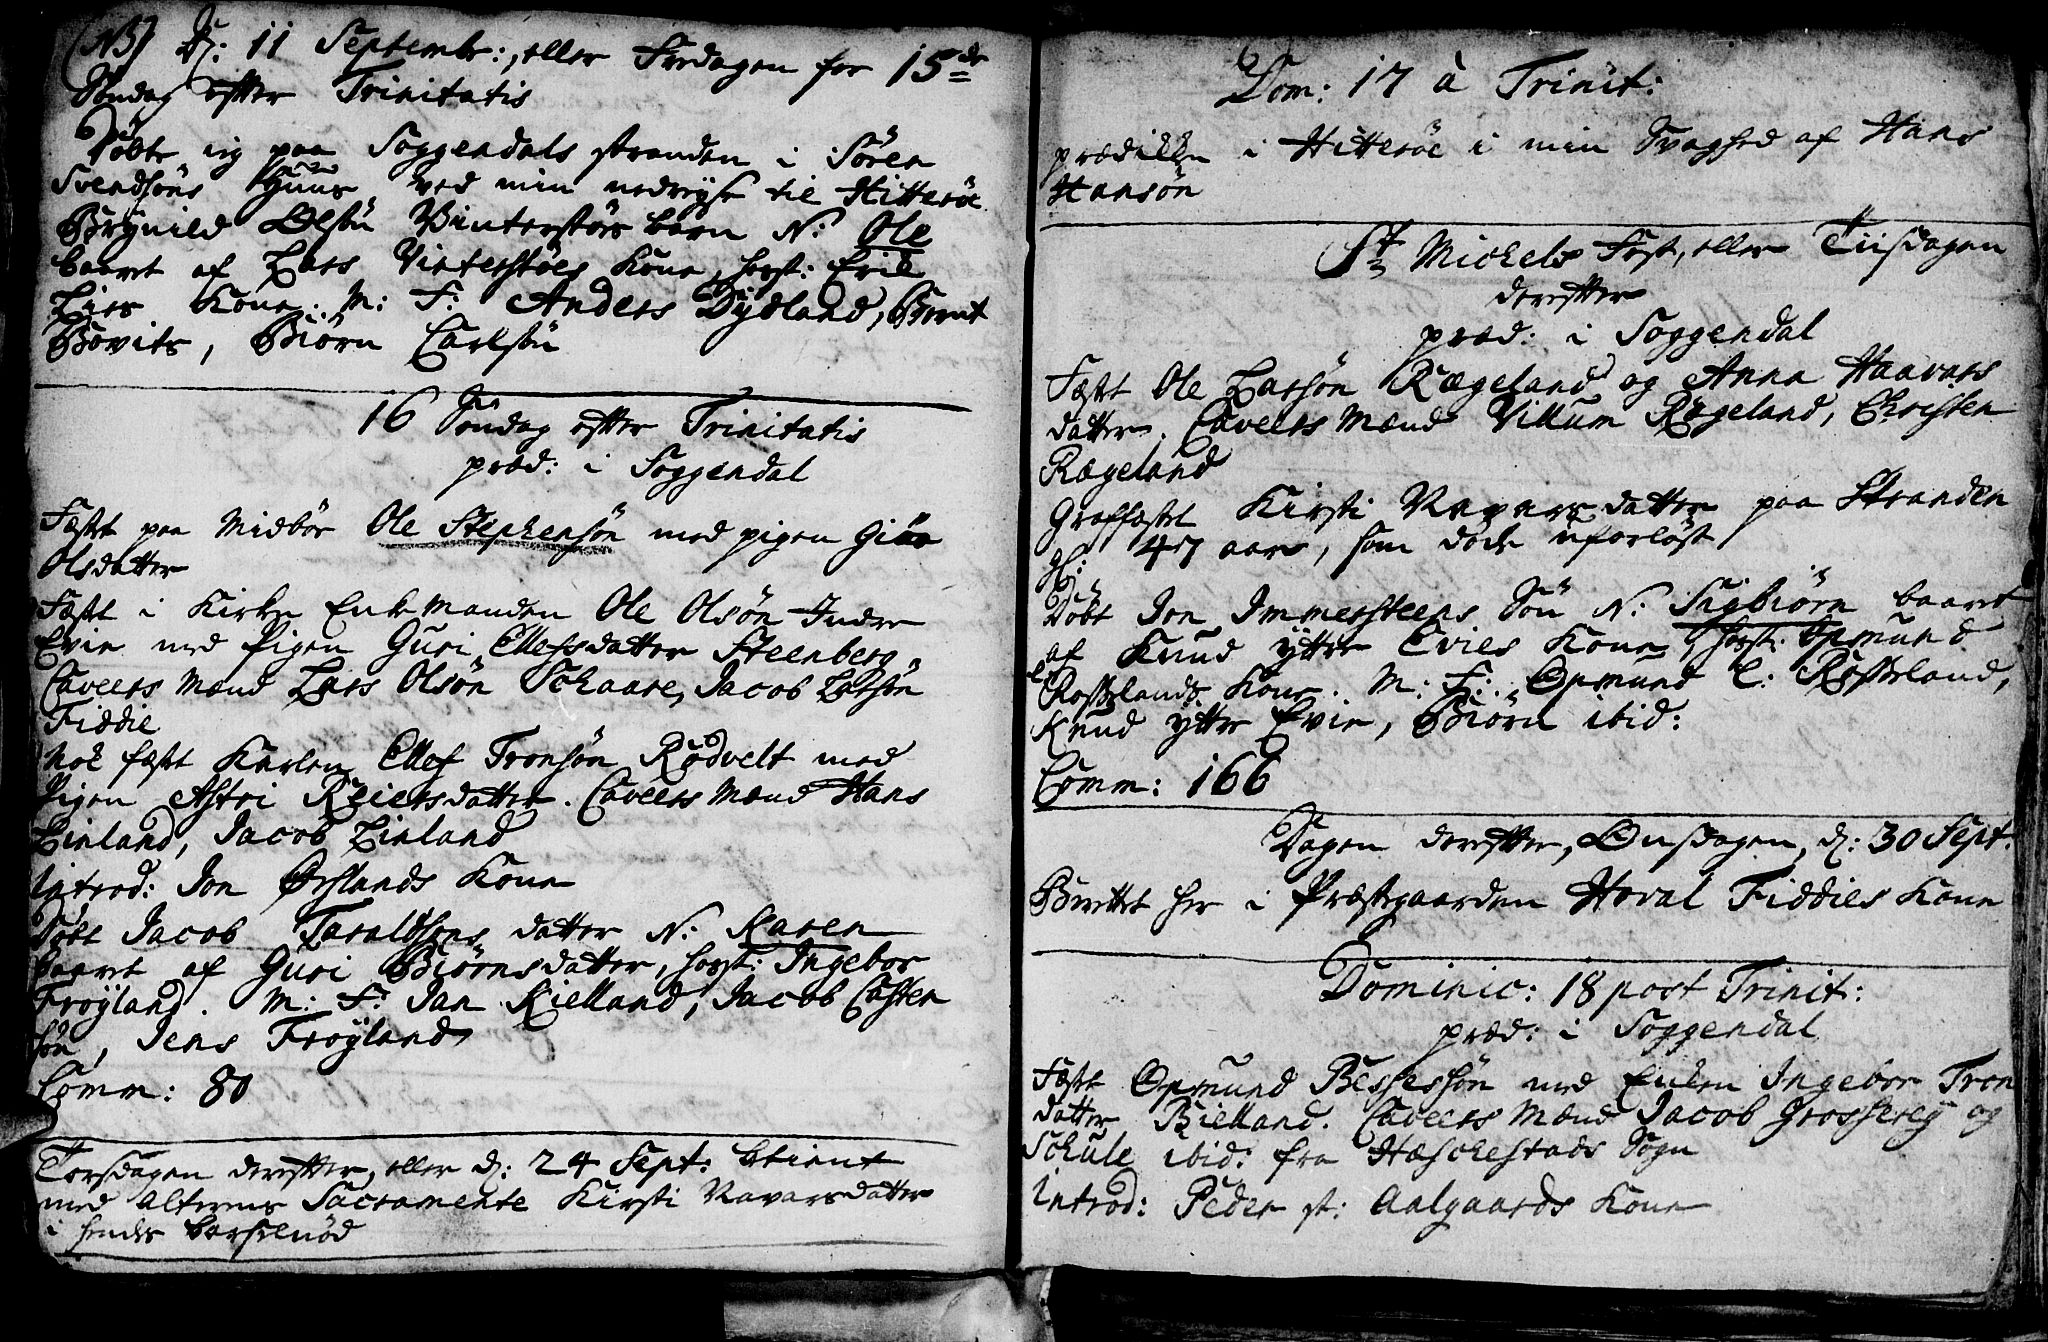 (NB) D: 11 Septembr:, eller Fredagen for 15de
Søndag efter Trinitatis
Døbte ieg paa Soggendals stranden i Sören
Svendsöns Huus ved min nedreyse til Hitteröe
Brynild Olsön Vinterstöes barn N: Ole
baaret af Lars Vinterstöes Kone, forst: Erik
Lies Kone. M: F: Anders Dydland, Brent
Bøvits, Biörn Carlsön
16 Söndag efter Trinitatis
præd: i Soggendal
Fæstet paa Midbör Ole Stephensön med pigen
Olsdatter
Fæst i Kirke Enke Manden Ole Olsön Indre
Evie med Pigen Guri Ellefsdatter Steenberg.
Caveers Mænd Lars Olsön Schaare, Jacob Larsön
Fiddie
Nok fæst Karlen Ellef Tronsön Rödvelt med
Pigen Astri Reiersdatter. Caveers Mænd Hans
Linland, Jacob Linland
Introd: Jon Örslands Kone
Döbt Jacob Taraldsöns datter N: Karen
baaret af Guri Biörnsdatter, forst: Ingebor
Fröyland. M: F: Jan Kielland, Jacob Casten
sön, Jens Fröyland
Comm: 80
Torsdagen derefter, eller d: 24 Sept: betient
med Alterens Sacramente Kirsti Ravarsdatter
i hendes barselnöd
Dom: 17 à Trinit:
prædiken i Hitteröe i min Svaghed af Hans
Hansön
St Michels Fest, eller Tiisdagen
derefter
præd: i Soggendal
Fæst Ole Larsön Rægeland og Anna Haavars
datter. Caveers Mænd Villum Rægeland, Christen
Rægeland
Graffæstet Kirsti Ravarsdatter paa Stranden
gl: 47 aar, som döde uforlöst
Döbt Jon Immersteens Sön N: Sigbiörn baaret
af Knud ytter Evies Kone, forst: Opmund
Rosslands Kone. M: F: Opmund C: Rossland,
Knud ytter Evie, Biörn ibid:
Comm: 166
Dagen derefter, Onsdagen, d: 30 Sept:
Berettet her i Præstegaarden Horal Fiddies Kone
Dominic: 18 post Trinit:
præd: i Soggendal
Fæst Opmund Bessesön med Enken Ingebor Tron
datter Bielland. Caveers Mænd Jacob Grosserey og
Schule ibid: fra Hæschestads Sogn
Introd: Peder st: Aalgaards Kone